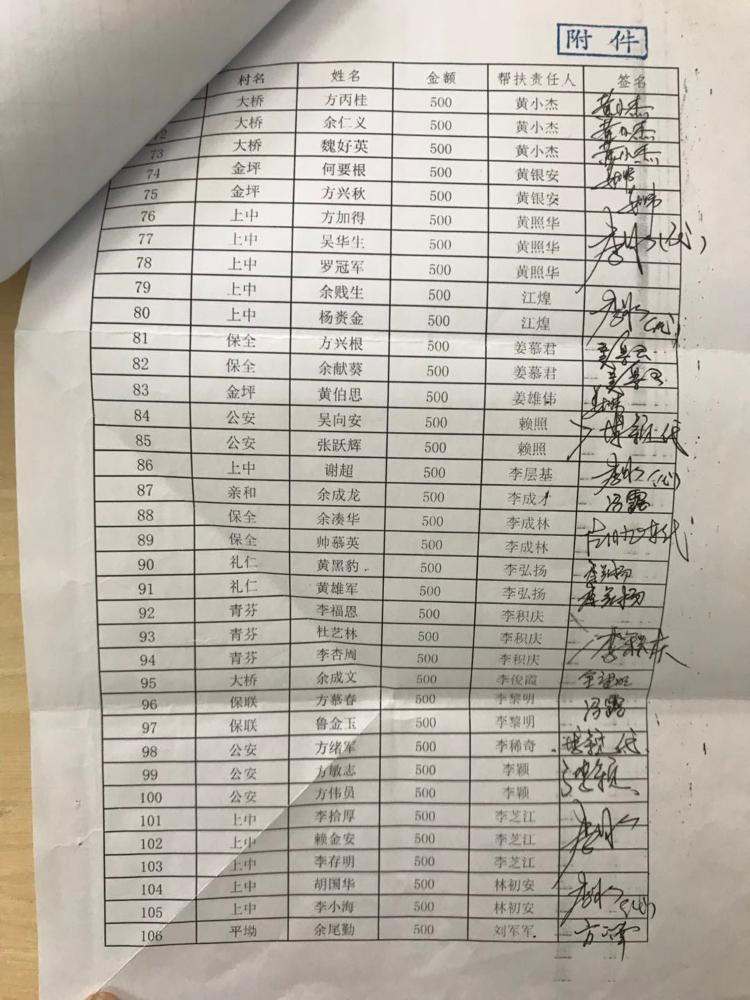 附件
村名 姓名 金额 帮扶责任人 签名
大桥 方丙桂 500 黄小杰 黄小杰
72 大桥 余仁义 500 黄小杰 黄小杰
73 大桥 魏好英 500 黄小杰 黄小杰
74 金坪 何要根 500 黄银安
75 金坪 方兴秋 500 黄银安
76 上中 方加得 500 黄照华
77 上中 吴华生 500 黄照华 (代)
78 上中 罗冠军 500 黄照华
79 上中 余贱生 500 江煌
80 上中 杨赉金 500 江煌 (代)
81 保全 方兴根 500 姜慕君
82 保全 余献葵 500 姜慕君
83 金坪 黄伯思 500 姜雄伟
84 公安 吴向安 500 赖照 代
85 公安 张跃辉 500 赖照
86 上中 谢超 500 李层基 (代)
87 亲和 余成龙 500 李成才 冯露
88 保全 余凑华 500 李成林
89 保全 帅慕英 500 李成林 代
90 礼仁 黄黑豹 500 李弘扬 李弘扬
91 礼仁 黄雄军 500 李弘扬 李弘扬
92 青芬 李福恩 500 李积庆
93 青芬 杜艺林 500 李积庆 李积庆
94 青芬 李杏周 500 李积庆
95 大桥 余成文 500 李俊霞
96 保联 方慕春 500 李黎明 冯露
97 保联 鲁金玉 500 李黎明
98 公安 方绪军 500 李稀奇 代
99 公安 方敏志 500 李颖
100 公安 方伟员 500 李颖
101 上中 李拾厚 500 李芝江
102 上中 赖金安 500 李芝江
103 上中 李存明 500 李芝江
104 上中 胡国华 500 林初安
105 上中 李小海 500 林初安 (代)
106 平坳 余尾勤 500 刘军军